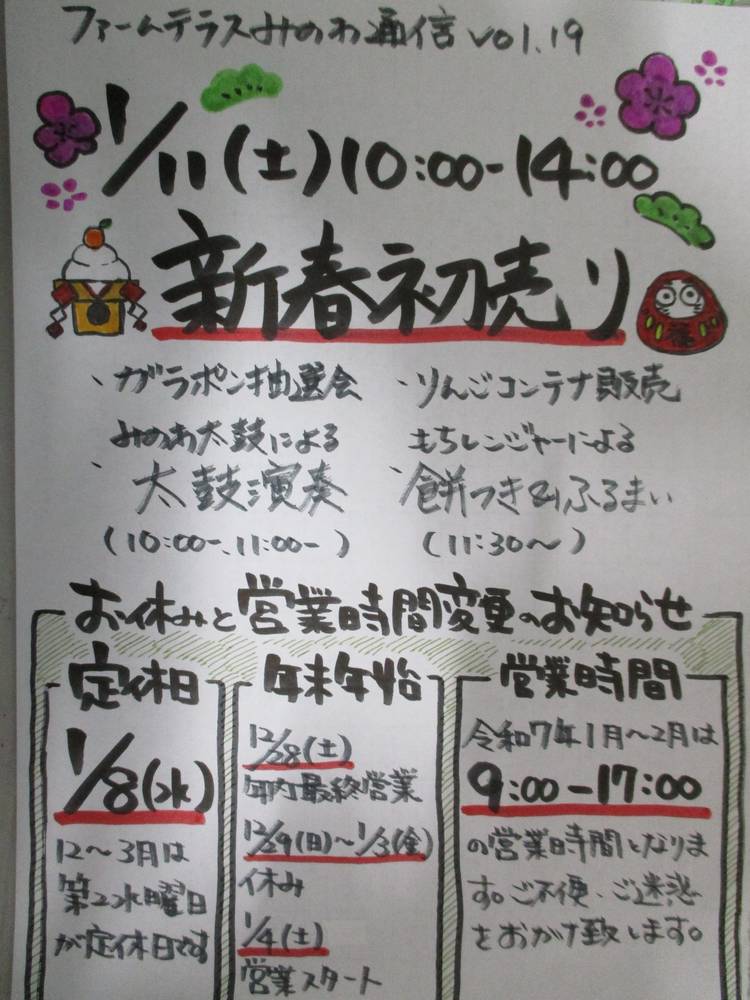 ファームテラスみのわ通信 vol.19
1/11(土)10:00-14:00
新春初売り
・ガラポン抽選会
・りんごコンテナ販売
・みのわ太鼓による
太鼓演奏
(10:00-、11:00-)
・もちレンジャーによる
餅つき&ふるまい
(11:30〜)
お休みと営業時間変更のお知らせ
定休日
1/8(水)
12〜3月は
第2水曜日
が定休日です
年末年始
12/28(土)
年内最終営業
12/29(日)〜1/3(金)
休み
1/4(土)
営業スタート
営業時間
令和7年1月〜2月は
9:00-17:00
の営業時間となりま
す。ご不便、ご迷惑
をおかけ致します。